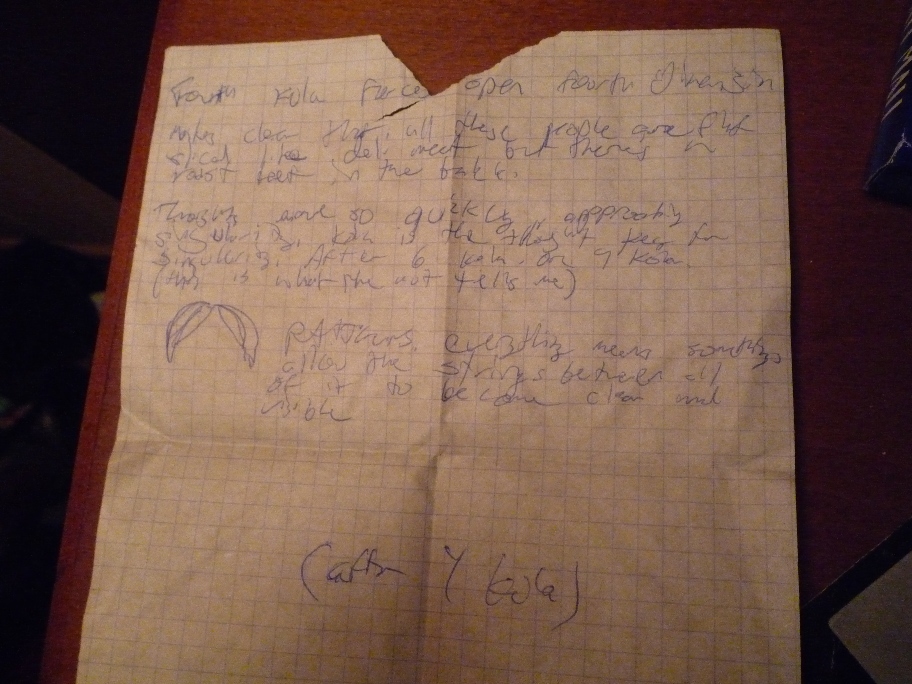 Fourth kola forces open fourth dimension
Makes clear that all these people are flat
sliced like deli meat but there's
roast beef in the back.
Things move so quickly, approaching
singularity, kola is the key for
singularity. After 6 kola or 4 kola.
(this is what the nut tells me)
PATTERNS, everything means something
allow the strings between all
of it to become clear and
visible
(after 4 kola)